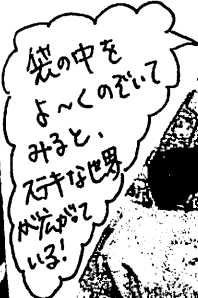 袋の中を
よ～くのぞいて
みると、
ステキな世界
が広がって
いる!